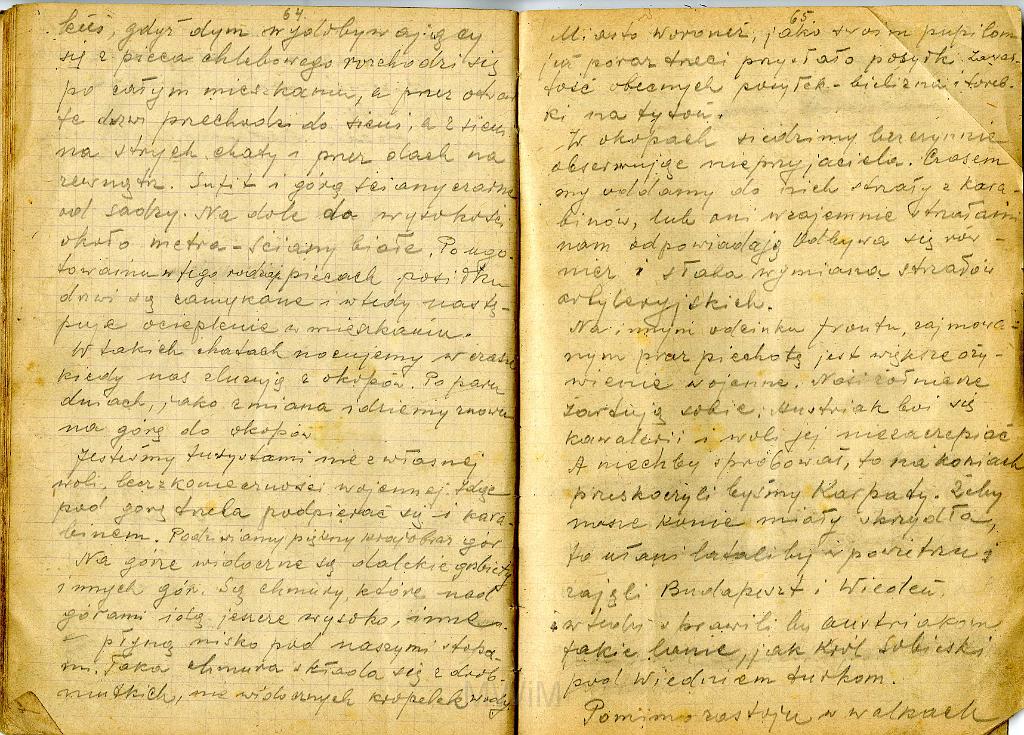 64.
kieś, gdyż dym wydobywający
się z pieca chlebowego rozchodzi się
po całym mieszkaniu, a przez otwar
te drzwi przechodzi do sieni, a z sieni
na strych chaty i przez dach na
zewnątrz. Sufit i górą ściany czarne
od sadzy. Na dole do wysokości
około metra - ściany białe. Po ugo-
towaniu w tego rodzaju piecach posiłku
drzwi są zamykane i wtedy nastę-
puje ocieplenie w mieszkaniu.
W takich chatach nocujemy w czasie
kiedy nas zluzują z okopów. Po paru
dniach, jako zmiana idziemy znowu
na górę do okopów
Jesteśmy turystami nie z własnej
woli, lecz z konieczności wojennej. Idąc
pod górę trzeba podpierać się i kara-
binem. Podziwiamy piękny krajobraz gór
Na górze widoczne są dalekie grzbiety
innych gór. Są chmury, które nad
górami idą jeszcze wysoko, inne
płyną nisko pod naszymi stopa-
mi. Taka chmura składa się z drob-
niutkich, nie widocznych kropelek wody
65.
Miasto Woroneż, jako swoim pupilom
już poraz trzeci przysłało posyłki. Zawar-
tość obecnych posyłek - bielizna i toreb-
ki na tytoń.
W okopach siedzimy bezczynnie
obserwując nieprzyjaciela. Czasem
my oddamy do nich strzały z kara-
binów, lub oni wzajemnie strzałami
nam odpowiadają Odbywa się rów-
nież i słaba wymiana strzałów
artyleryjskich.
Na innym odcinku frontu, zajmowa-
nym przez piechotę jest większe oży-
wienie wojenne. Nasi żołnierze
żartują sobie, Austriak boi się
kawalerii i woli jej niezaczepiać
A niechby spróbował, to na koniach
przeskoczyli byśmy Karpaty. Żeby
nasze konie miały skrzydła,
to ułani lataliby w powietrzu i
zajęli Budapeszt i Wiedeń.
Wtedy sprawili by austriakom
takie lanie, jak Król Sobieski
pod Wiedniem turkom.
Pomimo zastoju w walkach